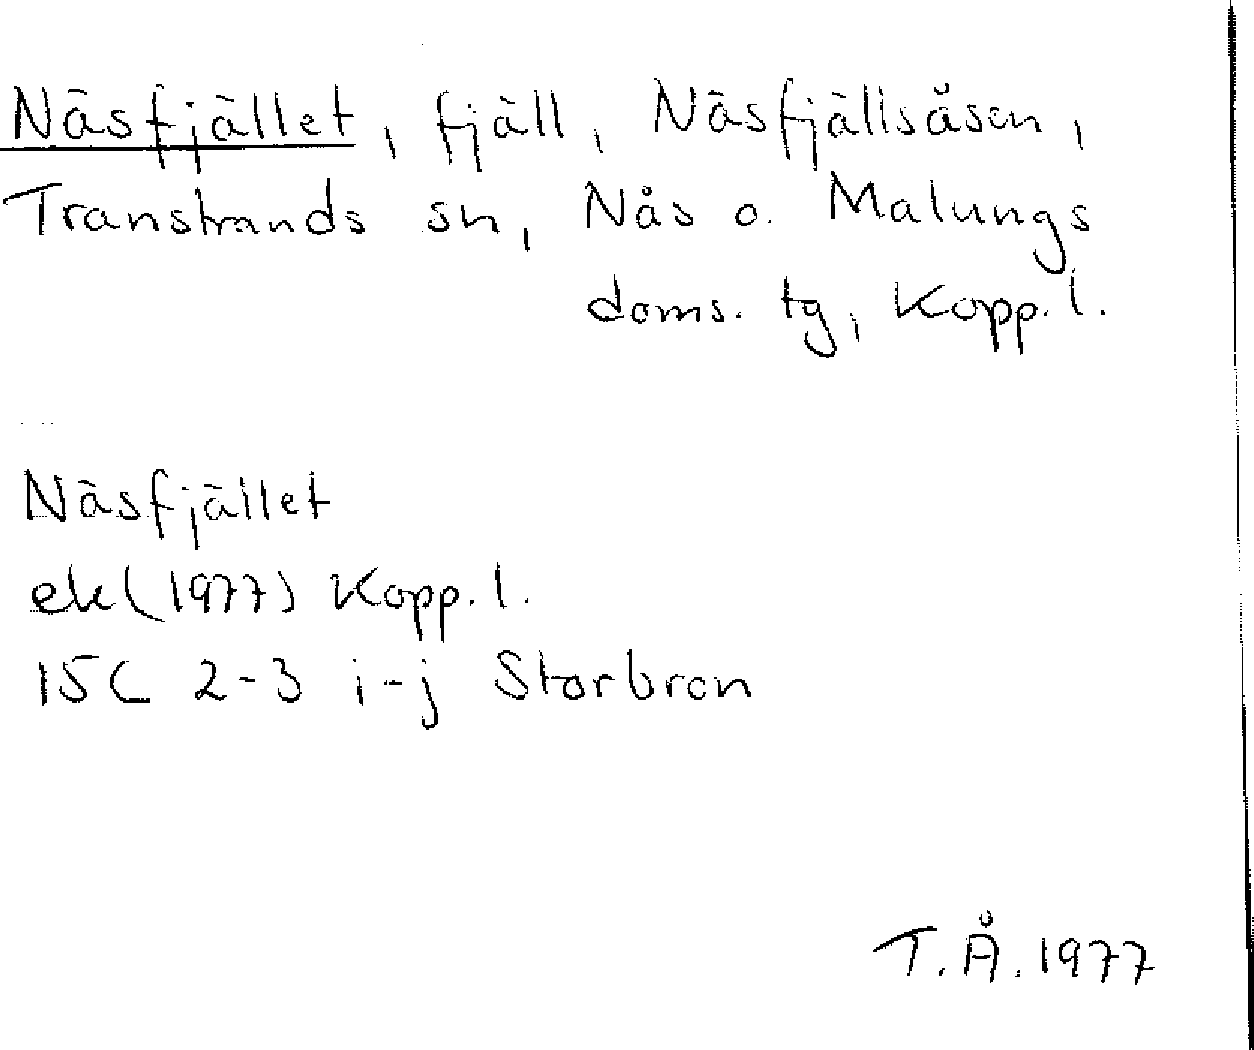 Näsfjället, fjäll, Näsfjällsåsen,
Transtrands sn, Nås o. Malungs
doms. tg, Kopp. l.
Näsfjället
ek (1977) Kopp. l.
15C 2-3 i-j Storbron
T.Å. 1977